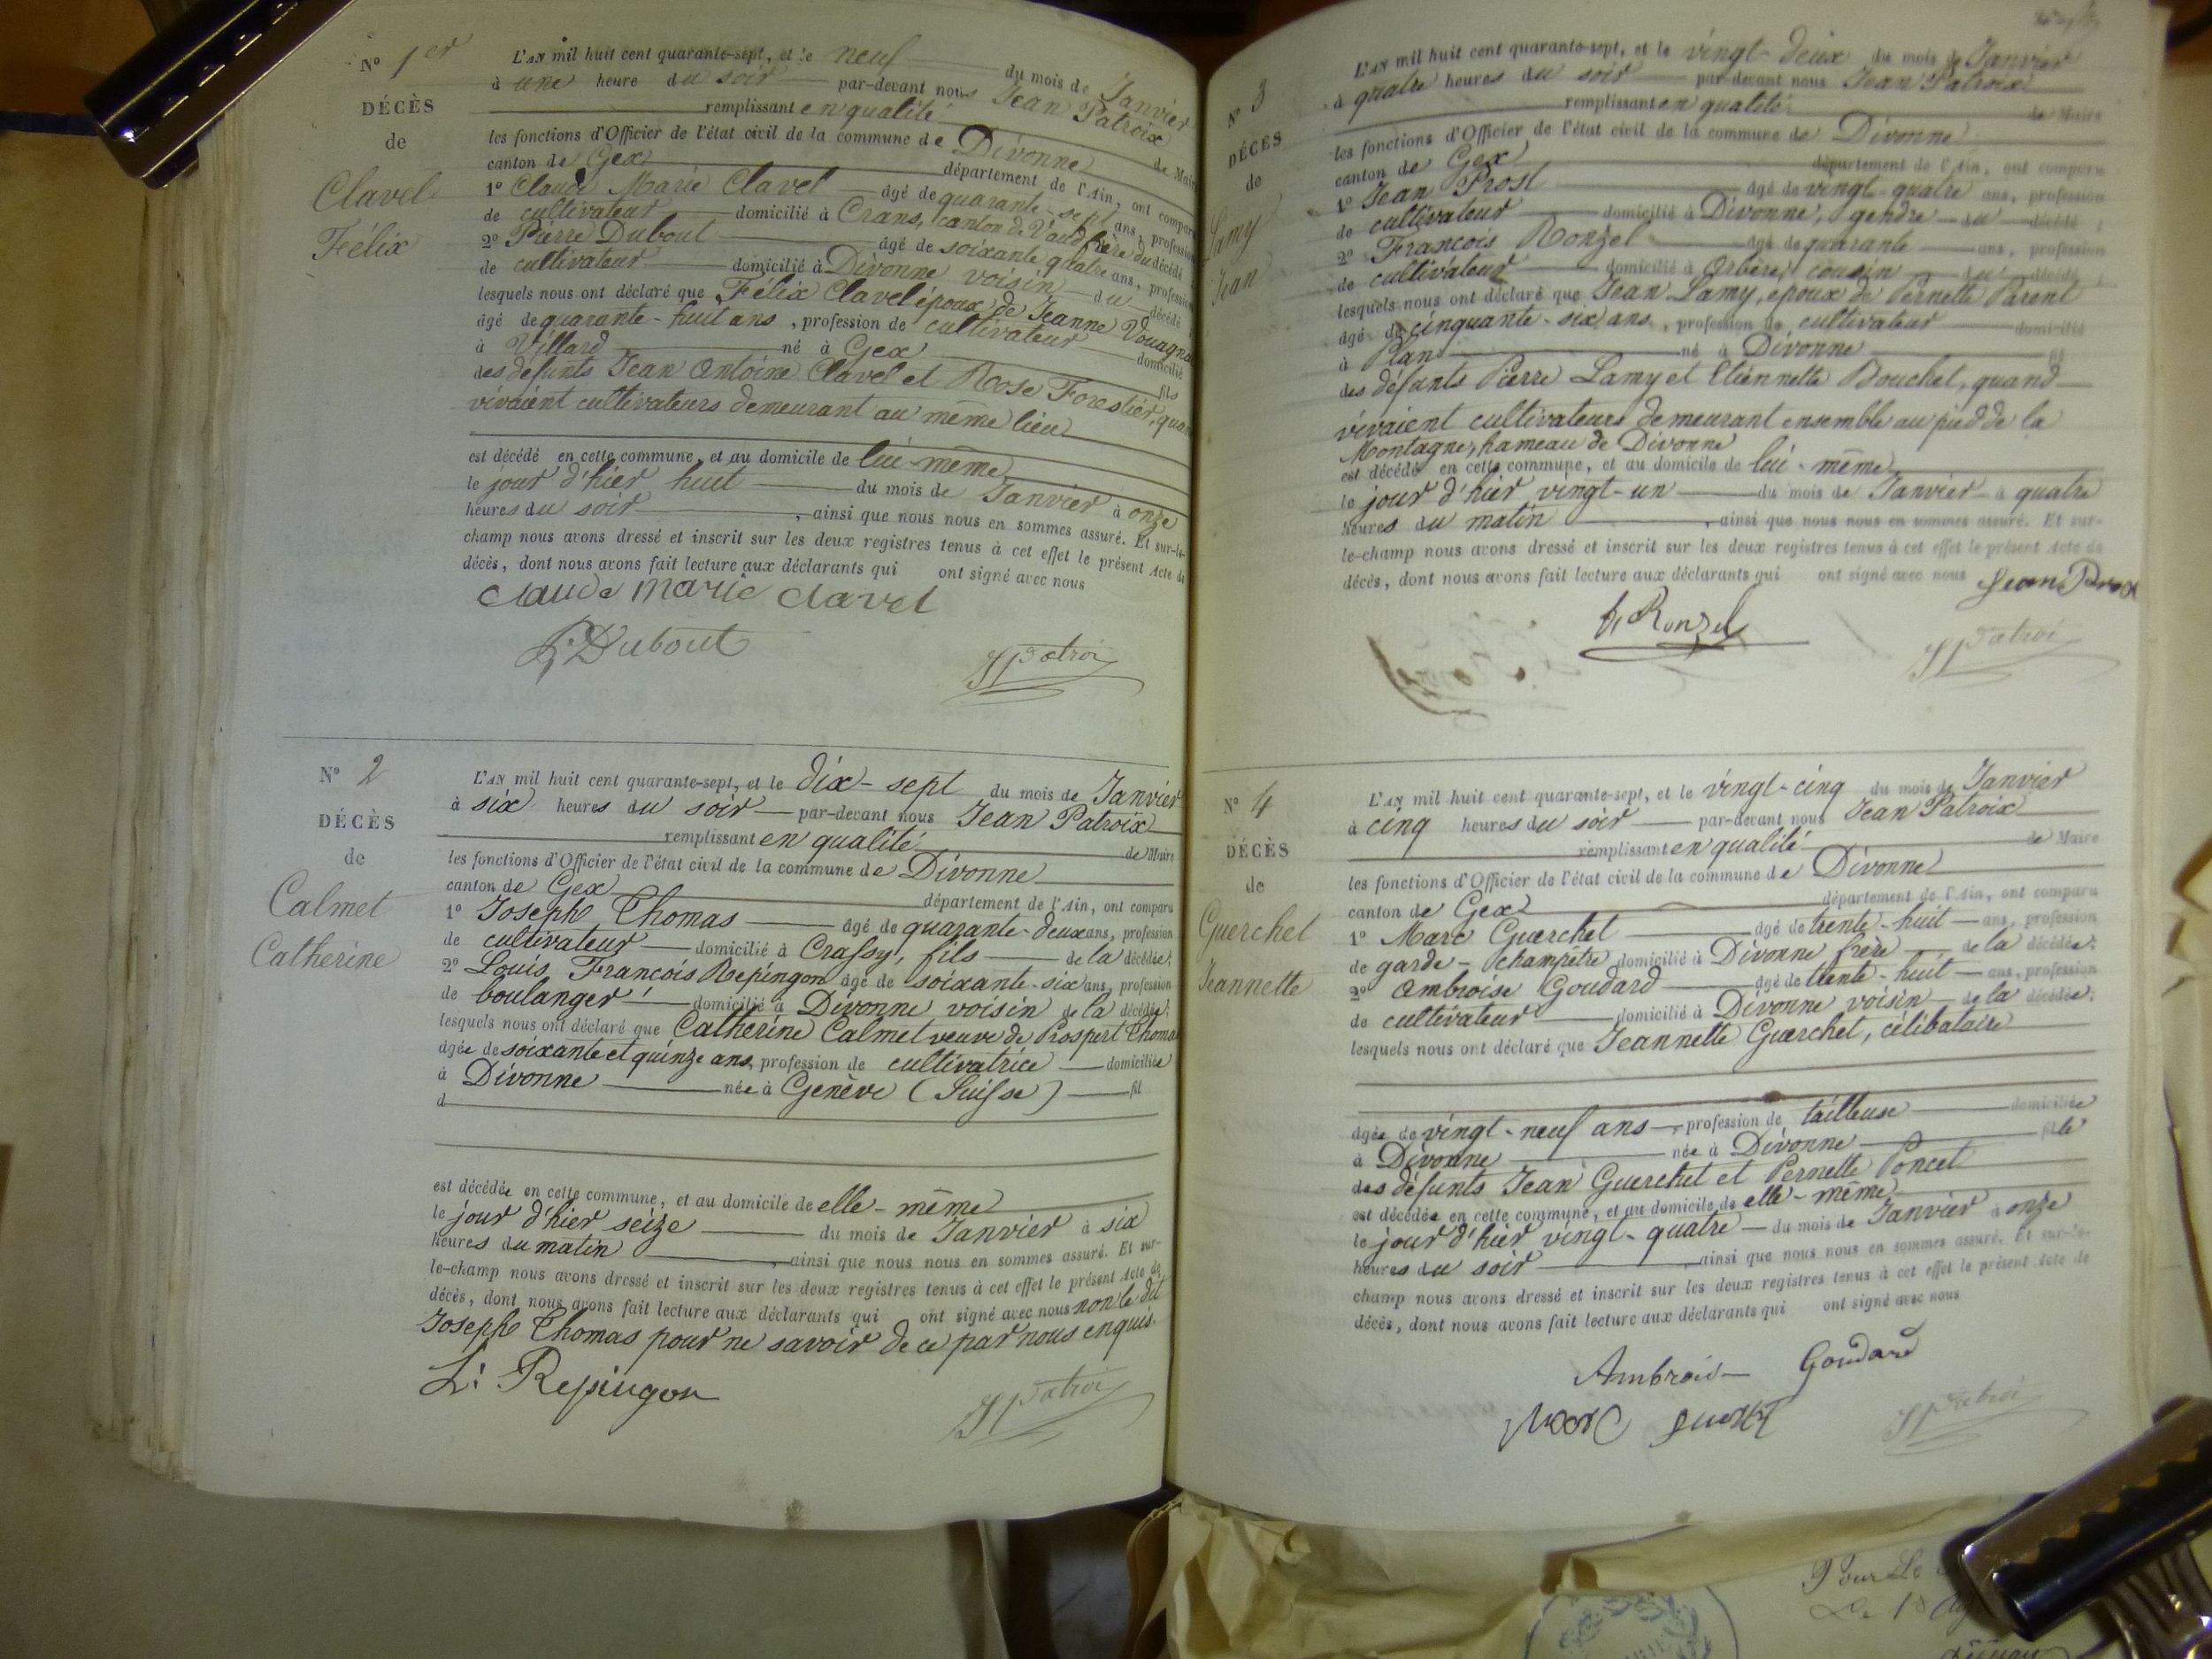 N° 1er
DÉCÈS
de
Clavel
Félix
L'AN mil huit cent quarante-sept, et le neuf du mois de Janvier
à une heure du soir par-devant nous Jean Patroix
remplissant en qualité de Maire
les fonctions d'Officier de l'état civil de la commune de Divonne
canton de Gex département de l'Ain, ont comparu
1° Claude Marie Clavel âgé de quarante-sept ans, profession
de cultivateur domicilié à Crans, canton de Vaud frère du décédé
2° Pierre Dubout âgé de soixante quatre ans, profession
de cultivateur domicilié à Divonne voisin du décédé
lesquels nous ont déclaré que Félix Clavel époux de Jeanne
âgé de quarante-huit ans, profession de cultivateur domicilié
à Villard né à Gex fils
des défunts Jean Antoine Clavel et Rose Forestier,
vivaient cultivateurs demeurant au même lieu
est décédé en cette commune, et au domicile de lui-même
le jour d'hier huit du mois de Janvier à onze
heures du soir, ainsi que nous nous en sommes assuré. Et sur-le-
champ nous avons dressé et inscrit sur les deux registres tenus à cet effet le présent Acte de
décès, dont nous avons fait lecture aux déclarants qui ont signé avec nous
Claude Marie Clavel
P. Dubout
JPatroi
N° 2
DÉCÈS
de
Calmet
Catherine
L'AN mil huit cent quarante-sept, et le dix-sept du mois de Janvier
à six heures du soir par-devant nous Jean Patroix
remplissant en qualité de Maire
les fonctions d'Officier de l'état civil de la commune de Divonne
canton de Gex département de l'Ain, ont comparu
1° Joseph Thomas âgé de quarante-deux ans, profession
de cultivateur domicilié à Crassy, fils de la décédée;
2° Louis François Repingon âgé de soixante-six ans, profession
de boulanger domicilié à Divonne voisin de la décédée;
lesquels nous ont déclaré que Catherine Calmet veuve de Prospert Thomas
âgée de soixante et quinze ans, profession de cultivatrice domiciliée
à Divonne née à Genève (Suisse) fil
d
est décédée en cette commune, et au domicile de elle-même
le jour d'hier seize du mois de Janvier à six
heures du matin, ainsi que nous nous en sommes assuré. Et sur-
le-champ nous avons dressé et inscrit sur les deux registres tenus à cet effet le présent Acte de
décès, dont nous avons fait lecture aux déclarants qui ont signé avec nous non le dit
Joseph Thomas pour ne savoir de ce par nous enquis.
L: Repingon
JPatroi
N° 3
DÉCÈS
de
Lamy
Jean
L'AN mil huit cent quarante-sept, et le vingt-deux du mois de Janvier
à quatre heures du soir par-devant nous Jean Patroix
remplissant en qualité de Maire
les fonctions d'Officier de l'état civil de la commune de Divonne
canton de Gex département de l'Ain, ont comparu
1° Jean Prost âgé de vingt-quatre ans, profession
de cultivateur domicilié à Divonne, gendre du décédé;
2° François Ronzel âgé de quarante ans, profession
de cultivateur domicilié à Arbère, cousin du décédé;
lesquels nous ont déclaré que Jean Lamy, époux de Pernette Parent
âgé de cinquante-six ans, profession de cultivateur domicilié
à Plan né à Divonne fil
des défunts Pierre Lamy et Etiennette Bouchet, quand
vivaient cultivateurs demeurant ensemble au pied de la
Montagne, hameau de Divonne
est décédé en cette commune, et au domicile de lui-même
le jour d'hier vingt-un du mois de Janvier à quatre
heures du matin, ainsi que nous nous en sommes assuré. Et sur-
le-champ nous avons dressé et inscrit sur les deux registres tenus à cet effet le présent Acte de
décès, dont nous avons fait lecture aux déclarants qui ont signé avec nous Jean
Ronzel
JPatroi
N° 4
DÉCÈS
de
Guerchet
Jeannette
L'AN mil huit cent quarante-sept, et le vingt-cinq du mois de Janvier
à cinq heures du soir par-devant nous Jean Patroix
remplissant en qualité de Maire
les fonctions d'Officier de l'état civil de la commune de Divonne
canton de Gex département de l'Ain, ont comparu
1° Marc Guerchet âgé de trente-huit ans, profession
de garde-champêtre domicilié à Divonne frère de la décédée;
2° Ambroise Goudard âgé de trente-huit ans, profession
de cultivateur domicilié à Divonne voisin de la décédée;
lesquels nous ont déclaré que Jeannette Guerchet, célibataire
âgée de vingt-neuf ans, profession de tailleuse domiciliée
à Divonne née à Divonne fille
des défunts Jean Guerchet et Pernette Poncet
est décédée en cette commune, et au domicile de elle-même
le jour d'hier vingt-quatre du mois de Janvier à onze
heures du soir, ainsi que nous nous en sommes assuré. Et sur-le-
champ nous avons dressé et inscrit sur les deux registres tenus à cet effet le présent Acte de
décès, dont nous avons fait lecture aux déclarants qui ont signé avec nous
Ambrois Goudard
Marc
JPatroi
Pour Le